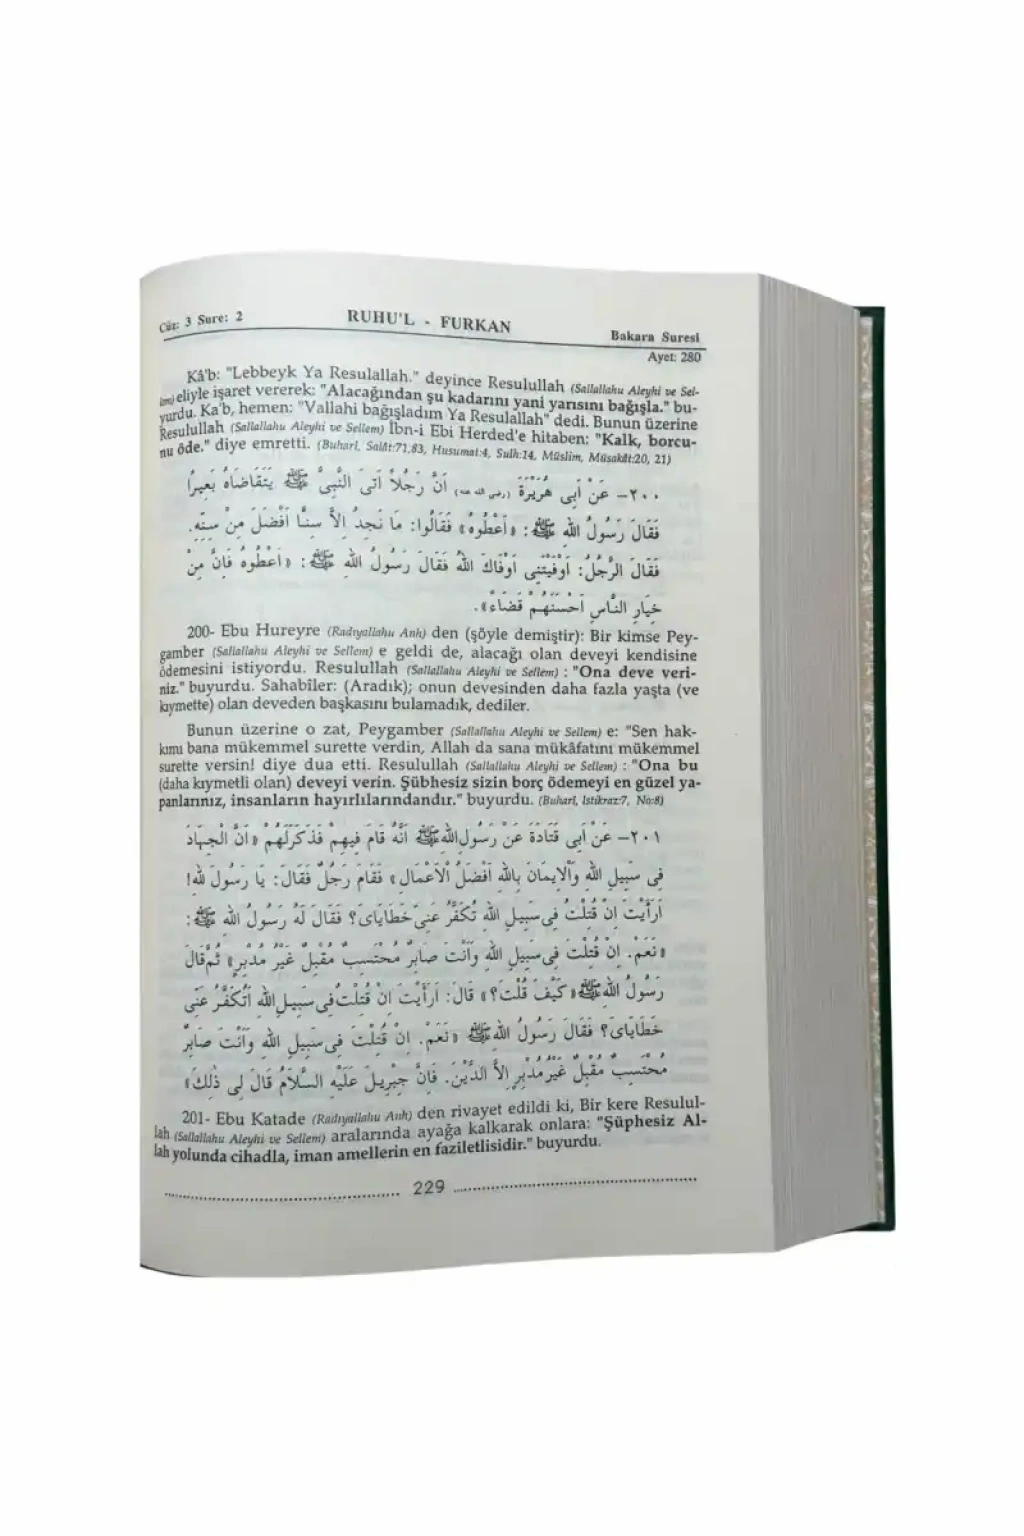 Cüz: 3 Sure: 2
RUHU'L - FURKAN
Bakara Suresi
Ayet: 280
Kâ'b: "Lebbeyk Ya Resulallah." deyince Resulullah (Sallallahu Aleyhi ve Sel-
lem) eliyle işaret vererek: "Alacağından şu kadarını yani yarısını bağışla." bu-
yurdu. Ka'b, hemen: "Vallahi bağışladım Ya Resulallah" dedi. Bunun üzerine
Resulullah (Sallallahu Aleyhi ve Sellem) İbn-i Ebi Herded'e hitaben: "Kalk, borcu-
nu öde." diye emretti. (Buharî, Salât:71,83, Husumat:4, Sulh:14, Müslim, Müsakât:20, 21)
٢٠٠– عَنْ اَبِى هُرَيْرَةَ (رضى الله عنه) اَنَّ رَجُلاً اَتَى النَّبِىَّ ﷺ يَتَقَاضَاهُ بَعِيرًا
فَقَالَ رَسُولُ اللهِ ﷺ: «اَعْطُوهُ» فَقَالُوا: مَا نَجِدُ اِلاَّ سِنًّا اَفْضَلَ مِنْ سِنِّهِ.
فَقَالَ الرَّجُلُ: اَوْفَيْتَنِى اَوْفَاكَ اللهُ فَقَالَ رَسُولُ اللهِ ﷺ: «اَعْطُوهُ فَاِنَّ مِنْ
خِيَارِ النَّاسِ اَحْسَنَهُمْ قَضَاءً».
200- Ebu Hureyre (Radıyallahu Anh) den (şöyle demiştir): Bir kimse Pey-
gamber (Sallallahu Aleyhi ve Sellem) e geldi de, alacağı olan deveyi kendisine
ödemesini istiyordu. Resulullah (Sallallahu Aleyhi ve Sellem) : "Ona deve veri-
niz." buyurdu. Sahabîler: (Aradık); onun devesinden daha fazla yaşta (ve
kıymette) olan deveden başkasını bulamadık, dediler.
Bunun üzerine o zat, Peygamber (Sallallahu Aleyhi ve Sellem) e: "Sen hak-
kımı bana mükemmel surette verdin, Allah da sana mükâfatını mükemmel
surette versin! diye dua etti. Resulullah (Sallallahu Aleyhi ve Sellem) : "Ona bu
(daha kıymetli olan) deveyi verin. Şübhesiz sizin borç ödemeyi en güzel ya-
panlarınız, insanların hayırlılarındandır." buyurdu. (Buharî, İstikraz:7, No:8)
٢٠١– عَنْ اَبِى قَتَادَةَ عَنْ رَسُولِ اللهِ ﷺ اَنَّهُ قَامَ فِيهِمْ فَذَكَرَلَهُمْ «اَنَّ الْجِهَادَ
فِى سَبِيلِ اللهِ وَاْلاِيمَانَ بِاللهِ اَفْضَلُ اْلاَعْمَالِ» فَقَامَ رَجُلٌ فَقَالَ: يَا رَسُولَ للهِ!
اَرَاَيْتَ اِنْ قُتِلْتُ فِى سَبِيلِ اللهِ تُكَفَّرُ عَنِّى خَطَايَاىَ؟ فَقَالَ لَهُ رَسُولُ اللهِ ﷺ:
«نَعَمْ. اِنْ قُتِلْتَ فِى سَبِيلِ اللهِ وَاَنْتَ صَابِرٌ مُحْتَسِبٌ مُقْبِلٌ غَيْرُ مُدْبِرٍ» ثُمَّ قَالَ
رَسُولُ اللهِ ﷺ «كَيْفَ قُلْتَ؟» قَالَ: اَرَاَيْتَ اِنْ قُتِلْتُ فِى سَبِيلِ اللهِ اَتُكَفَّرُ عَنِّى
خَطَايَاىَ؟ فَقَالَ رَسُولُ اللهِ ﷺ «نَعَمْ. اِنْ قُتِلْتَ فِى سَبِيلِ اللهِ وَاَنْتَ صَابِرٌ
مُحْتَسِبٌ مُقْبِلٌ غَيْرُ مُدْبِرٍ اِلاَّ الدَّيْنَ. فَاِنَّ جِبْرِيلَ عَلَيْهِ السَّلاَمُ قَالَ لِى ذٰلِكَ»
201- Ebu Katade (Radıyallahu Anh) den rivayet edildi ki, Bir kere Resulul-
lah (Sallallahu Aleyhi ve Sellem) aralarında ayağa kalkarak onlara: "Şüphesiz Al-
lah yolunda cihadla, iman amellerin en faziletlisidir." buyurdu.
229